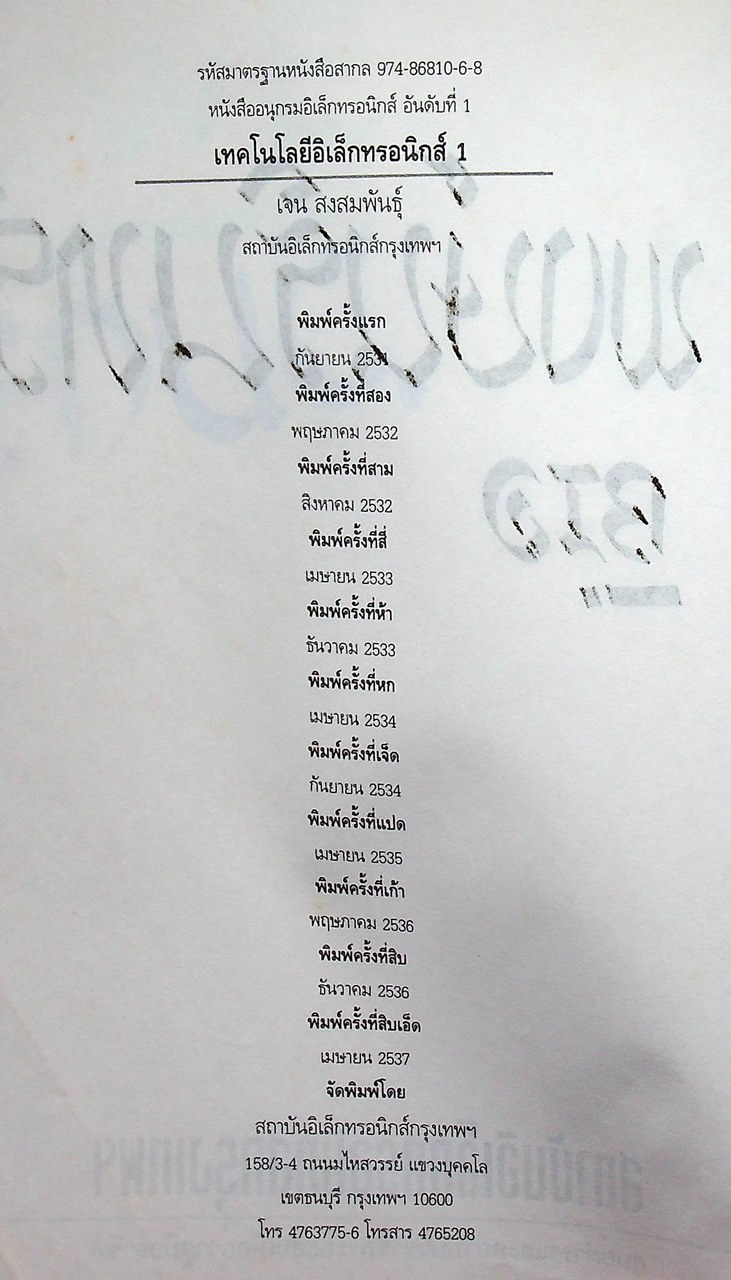 รหัสมาตรฐานหนังสือสากล 974-86810-6-8
หนังสืออนุกรมอิเล็กทรอนิกส์ อันดับที่ 1
เทคโนโลยีอิเล็กทรอนิกส์ 1
เจน สงสมพันธุ์
สถาบันอิเล็กทรอนิกส์กรุงเทพฯ
พิมพ์ครั้งแรก
กันยายน 2531
พิมพ์ครั้งที่สอง
พฤษภาคม 2532
พิมพ์ครั้งที่สาม
สิงหาคม 2532
พิมพ์ครั้งที่สี่
เมษายน 2533
พิมพ์ครั้งที่ห้า
ธันวาคม 2533
พิมพ์ครั้งที่หก
เมษายน 2534
พิมพ์ครั้งที่เจ็ด
กันยายน 2534
พิมพ์ครั้งที่แปด
เมษายน 2535
พิมพ์ครั้งที่เก้า
พฤษภาคม 2536
พิมพ์ครั้งที่สิบ
ธันวาคม 2536
พิมพ์ครั้งที่สิบเอ็ด
เมษายน 2537
จัดพิมพ์โดย
สถาบันอิเล็กทรอนิกส์กรุงเทพฯ
158/3-4 ถนนมไหสวรรย์ แขวงบุคคโล
เขตธนบุรี กรุงเทพฯ 10600
โทร 4763775-6 โทรสาร 4765208